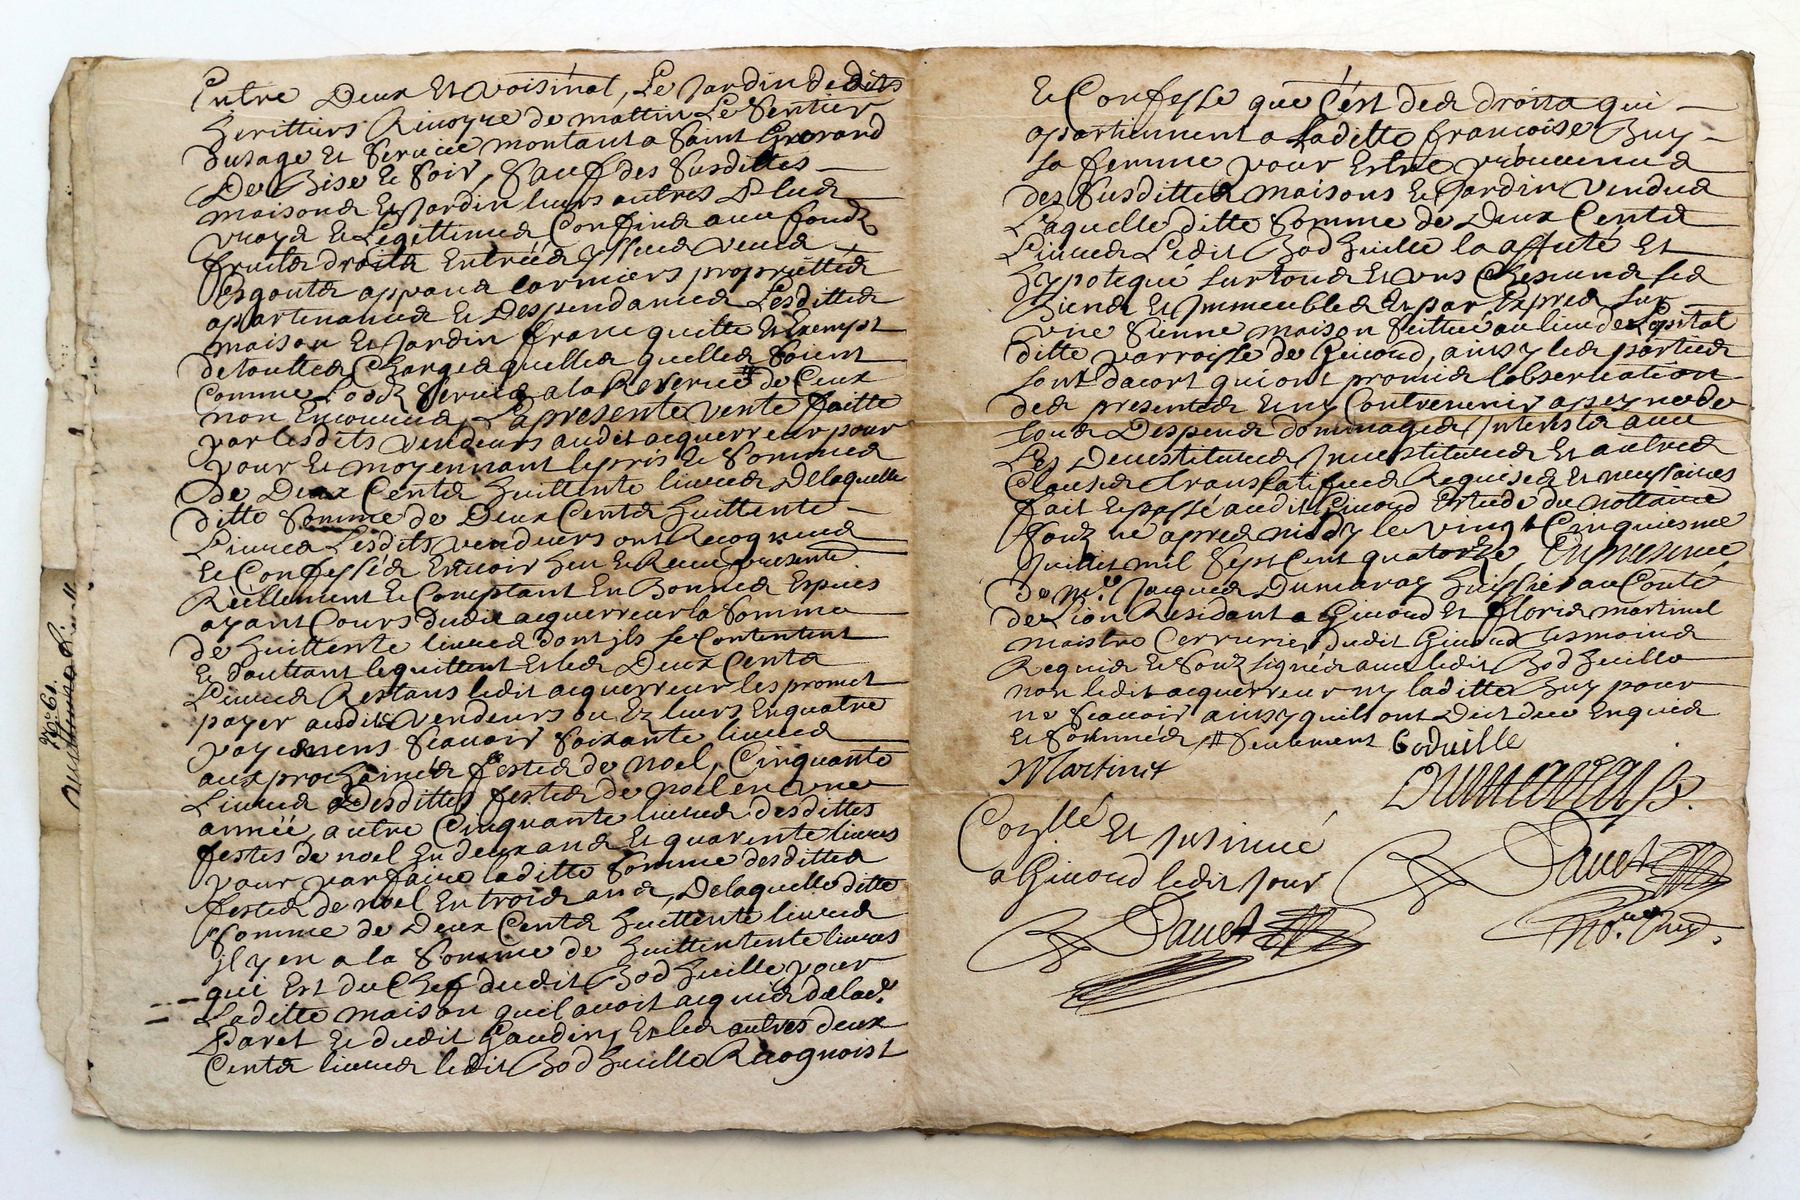 Entre Deux Et voisinal, Le Jardin dedits
heritiers Rivoyre de mattin Le Sentier
dusage Et Service montant a Saint Gerard
De Bise Et Soir, Sauf des Susdittes
maisons Et Jardin leurs autres Plus
vrays Et Legittimes Confins avec fondz
fruits droits Entrées yssues veues
Esgouts appans Larmiers proprietés
apartenances Et Despendances Lesdittes
maison Et Jardin franc quitte Et Exempt
de touttes Charges quelles quelles Soient
Comme Lodz Servis a la Reserve de Ceux
non Encourus, La presente vente faitte
par lesdits vendeurs audit acquerreur pour
pour Et moyennant le pris Et Somme
de Deux Cents huittente livres Delaquelle
ditte Somme de Deux Cents huittente
Livres Lesdits vendeurs ont Recognus
Et Confessés Envoir heu Et Receu presente
Réellement Et Comptant En Bonnes Espéces
ayant Cours dudit acquerreur la Somme
de huittente livres dont jls se Contentent
Et dauttant le quittent Et les Deux Cents
Livres Restans ledit acquerreur les promet
payer audits vendeurs ou Ez leurs En quatre
payemens Scavoir Soixante livres
aux prochaines festes de noel, Cinquante
Livres Desdittes festes de noel en une
année, autre Cinquante livres desdittes
festes de noel En deux ans Et quarente livres
pour parfaire laditte Somme desdittes
festes de noel En trois ans, Delaquelle ditte
Somme de Deux Cents huittente livres
jl y en a la Somme de huittentente livres
qui Est du Chef dudit Bodhuille pour
Laditte maison quil avoit acquis delad.
Paret Et dudit Gaudin, Et les autres deux
Cents livres ledit Bodhuille Recognoist
Et Confesse que C'est des droits qui
apartiennent a Laditte francoise Buy
sa femme pour Estre provenus
des Susdittes maisons Et Jardin vendus
Laquelle ditte Somme de Deux Cents
Livres Ledit Bodhuille la assuté Et
hypotequé sur tous Et uns Chescuns ses
Biens Et Jmmeubles Et par Expres sur
une Sienne maison Scittuée au lieu de Lopital
ditte parroisse de Givord, ainsy les parties
sont dacort qui ont promis lobservation
des presentes Et ny Contrevenir a peyne de
tous Despens dommages Jnterests avec
Les Devestitures Jnvestitures Et autres
Clauses translatifves Requises Et necessaires
fait Et passé audit Givord Estude du nottaire
souz né apres midy le vingt Cinquiesme
Juillet mil Sept Cent quatorze, En presence
de Mr. Jacques Dumaray huissier au Conté
de Lion Residant a Givord Et floris martinet
maistre Cerrurier dudit Givord tesmoins
Requis Et Souz signés avec ledit Bodhuille
non ledit acquerreur ny laditte Buy pour
ne Scavoir ainsy quils ont Dict due Enquis
Et Sommés # Seulement Boduille
Martinet
Dumaray
Coyllé Et Jnsinué
a Givord ledit jour
Davet
Davet
No.re Roy.